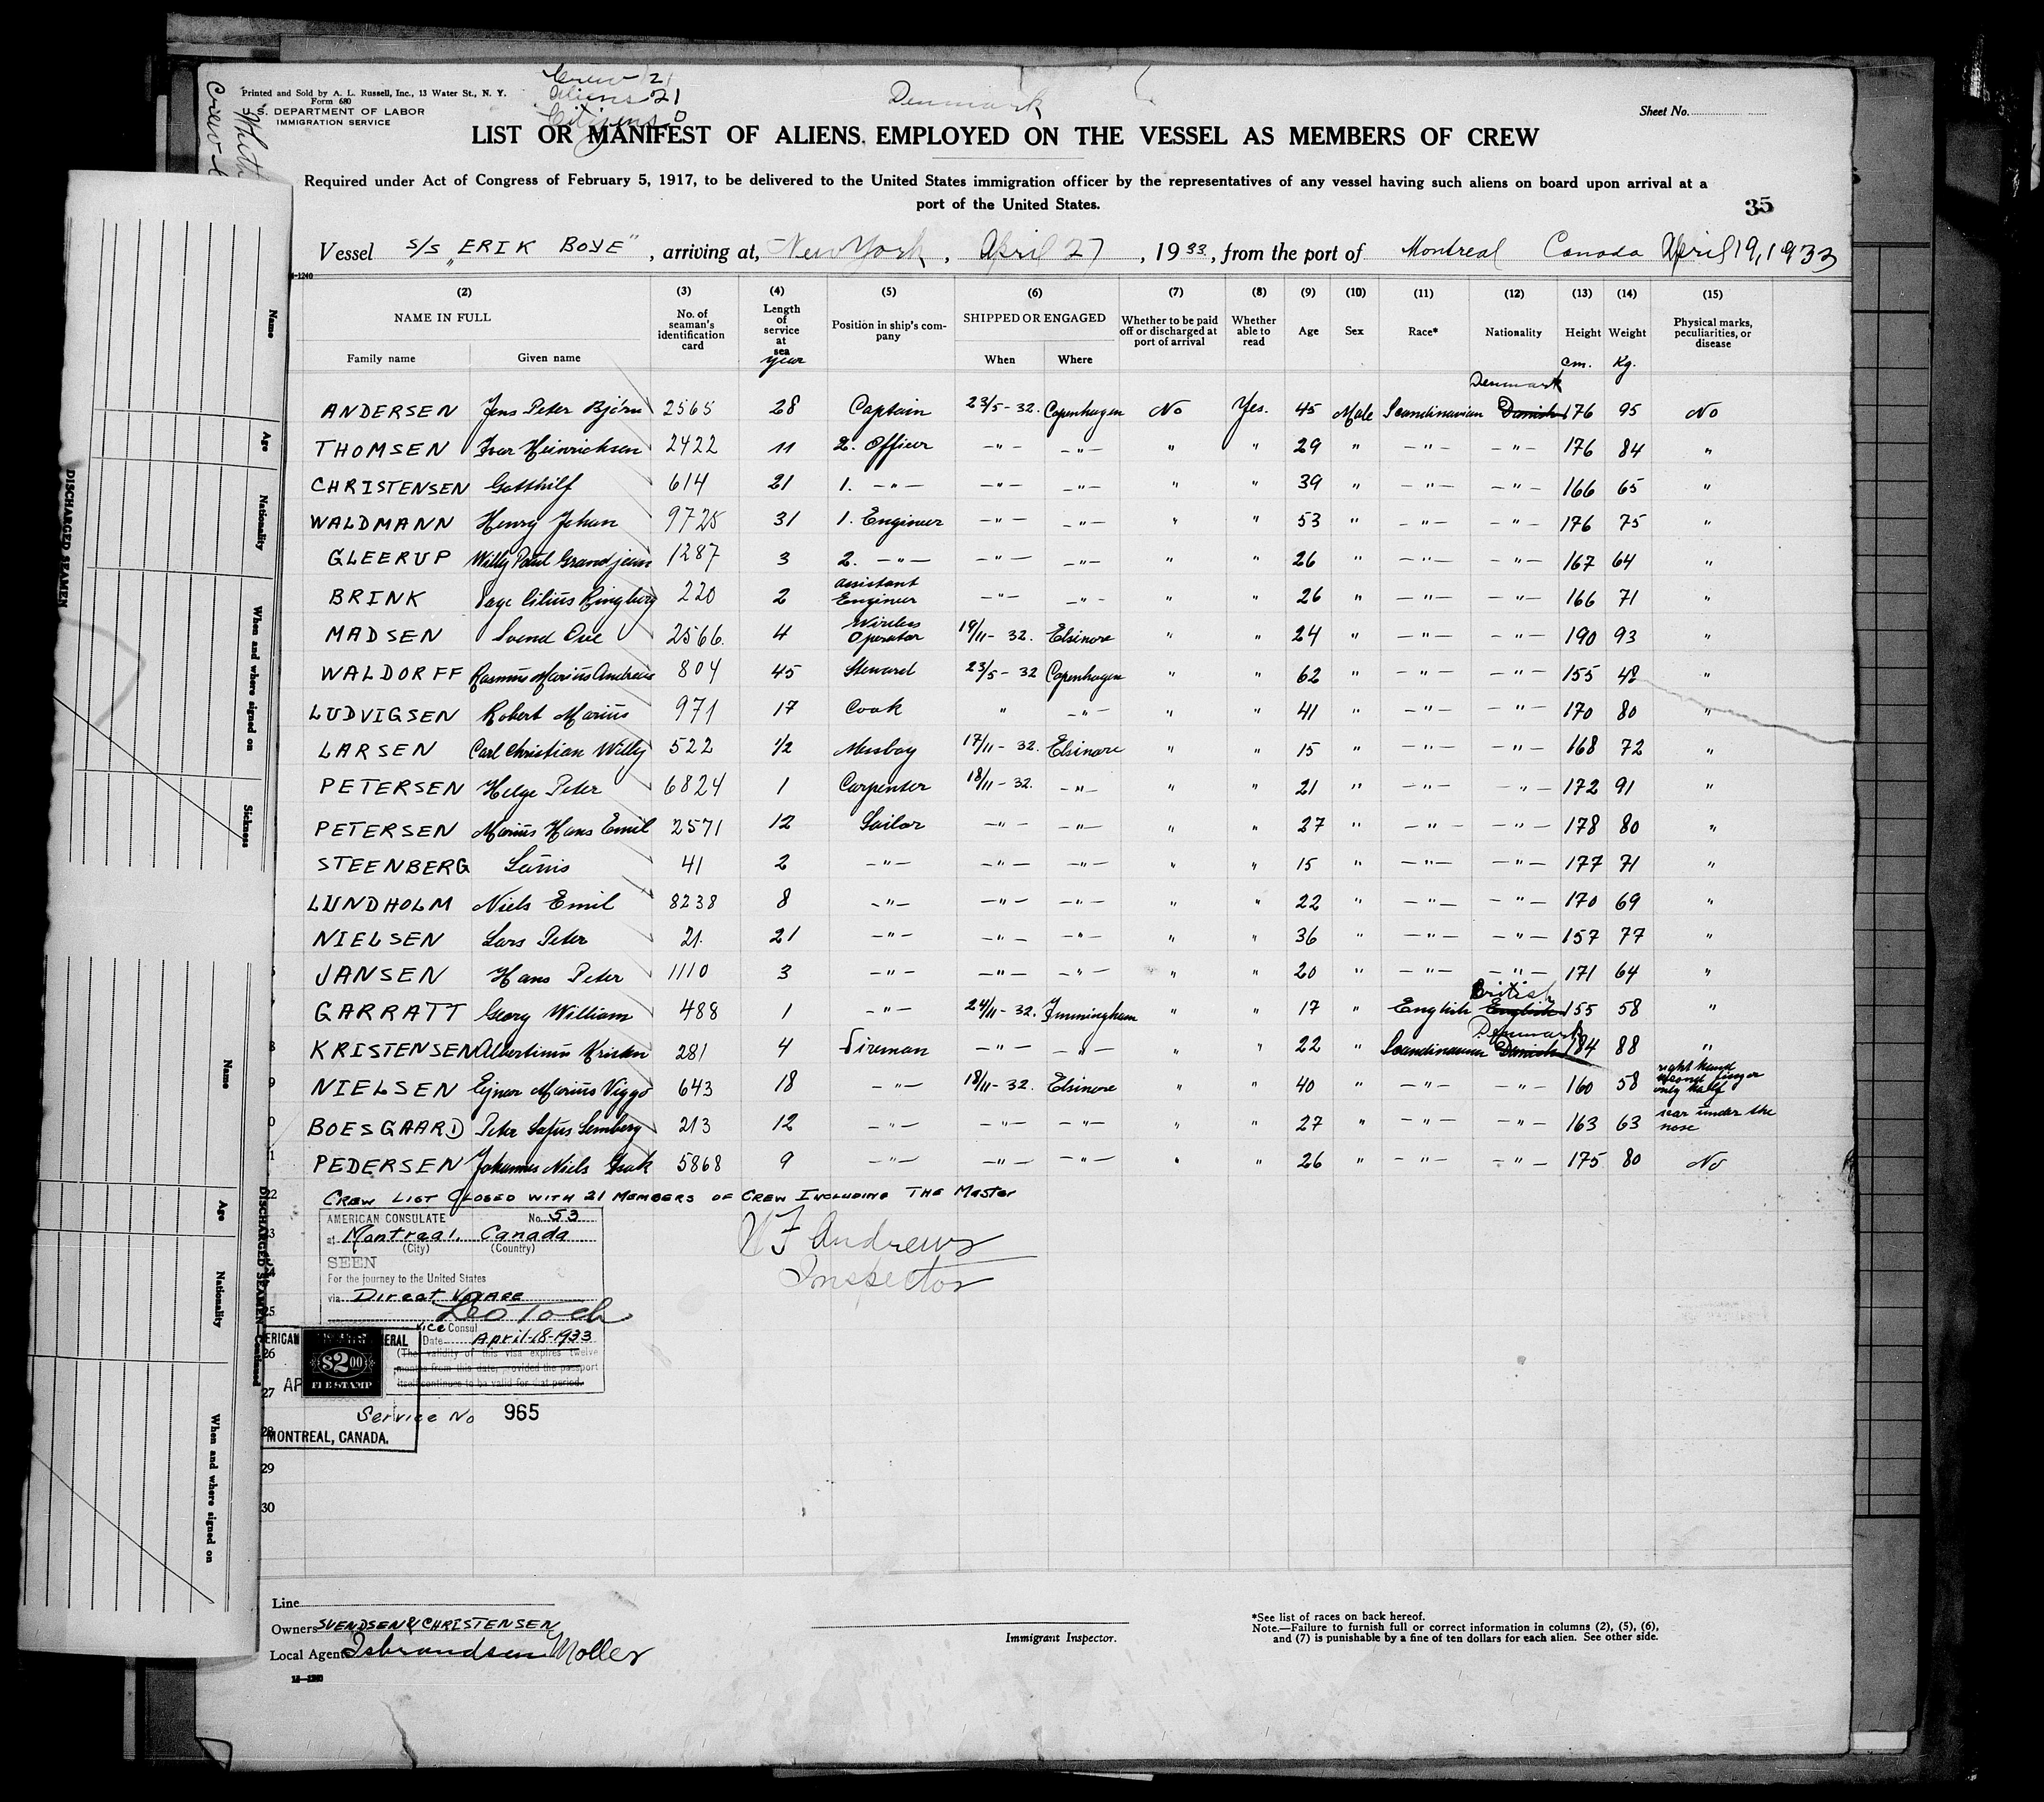 Crew 21
Aliens 21
Citizens 0
Denmark
Printed and Sold by A. L. Russell, Inc., 13 Water St., N. Y.
Form 680
U.S. DEPARTMENT OF LABOR
IMMIGRATION SERVICE
Sheet No.
LIST OR MANIFEST OF ALIENS EMPLOYED ON THE VESSEL AS MEMBERS OF CREW
Required under Act of Congress of February 5, 1917, to be delivered to the United States immigration officer by the representatives of any vessel having such aliens on board upon arrival at a
port of the United States.
35
Vessel S/S „ERIK BOYE", arriving at, New York, April 27, 1933, from the port of Montreal Canada April 19, 1933
(2) (3) (4) (5) (6) (7) (8) (9) (10) (11) (12) (13) (14) (15)
NAME IN FULL No. of seaman's identification card Length of service at sea year Position in ship's company SHIPPED OR ENGAGED Whether to be paid off or discharged at port of arrival Whether able to read Age Sex Race* Nationality Height cm. Weight Kg. Physical marks, peculiarities, or disease
Family name Given name When Where
Denmark
ANDERSEN Jens Peter Björn 2565 28 Captain 23/5-32. Copenhagen No Yes. 45 Male Scandinavian Danish 176 95 No
THOMSEN Ivar Heinrichsen 2422 11 2. Officer -"- -"- " " 29 " -"- -"- 176 84 "
CHRISTENSEN Gotthilf 614 21 1. -"- -"- -"- " " 39 " -"- -"- 166 65 "
WALDMANN Henry Johan 9725 31 1. Engineer -"- -"- " " 53 " -"- -"- 176 75 "
GLEERUP Willy Poul Grandjean 1287 3 2. -"- -"- -"- " " 26 " -"- -"- 167 64 "
BRINK 220 2 assistant Engineer -"- -"- " " 26 " -"- -"- 166 71 "
MADSEN Svend Ove 2566. 4 Wireless Operator 19/11-32. Elsinore " " 24 " -"- -"- 190 93 "
WALDORFF Rasmus Marius Andreas 804 45 Steward 23/5-32 Copenhagen " " 62 " -"- -"- 155 48 "
LUDVIGSEN Robert Marius 971 17 Cook " -"- " " 41 " -"- -"- 170 80 "
LARSEN Carl Christian Willy 522 1/2 Messboy 17/11-32. Elsinore " " 15 " -"- -"- 168 72 "
PETERSEN Helge Peter 6824 1 Carpenter 18/11-32. -"- " " 21 " -"- -"- 172 91 "
PETERSEN Marius Hans Emil 2571 12 Sailor -"- -"- " " 27 " -"- -"- 178 80 "
STEENBERG 41 2 -"- -"- -"- " " 15 " -"- -"- 177 71 "
LUNDHOLM Niels Emil 8238 8 -"- -"- -"- " " 22 " -"- -"- 170 69 "
NIELSEN Lars Peter 21. 21 -"- -"- -"- " " 36 " -"- -"- 157 77 "
JANSEN Hans Peter 1110 3 -"- -"- -"- " " 20 " -"- -"- 171 64 "
British
GARRATT Georg William 488 1 -"- 24/11-32. Immingham " " 17 " English English 155 58 "
Denmark
KRISTENSEN Albertinus Kristen 281 4 Fireman -"- -"- " " 22 " Scandinavian Danish 184 88 "
NIELSEN Ejner Marius Viggo 643 18 -"- 18/11-32. Elsinore " " 40 " -"- -"- 160 58 right hand second finger only half
BOESGAARD Peter 213 12 -"- -"- -"- " " 27 " -"- -"- 163 63 scar under the nose
PEDERSEN Johannes Niels 5868 9 -"- -"- -"- " " 26 " -"- -"- 175 80 No
CREW LIST CLOSED WITH 21 MEMBERS OF CREW INCLUDING THE MASTER
AMERICAN CONSULATE No. 53
at Montreal, Canada
(City) (Country)
SEEN
For the journey to the United States
via Direct
Vice Consul
Date April-18-1933
(The validity of this visa expires twelve
months from this date, provided the passport
itself continues to be valid for that period.
$2.00
FEE STAMP
Service No 965
MONTREAL, CANADA.
W F Andrews
Inspector
22
23
24
25
26
27
28
29
30
Line
Owners SVENDSEN & CHRISTENSEN
Local Agent Isbrandsen Moller
Immigrant Inspector.
*See list of races on back hereof.
Note.—Failure to furnish full or correct information in columns (2), (5), (6),
and (7) is punishable by a fine of ten dollars for each alien. See other side.
DISCHARGED SEAMEN
Name
Age
Nationality
When and where signed on
Sickness
DISCHARGED SEAMEN—Continued
Name
Age
Nationality
When and where signed on